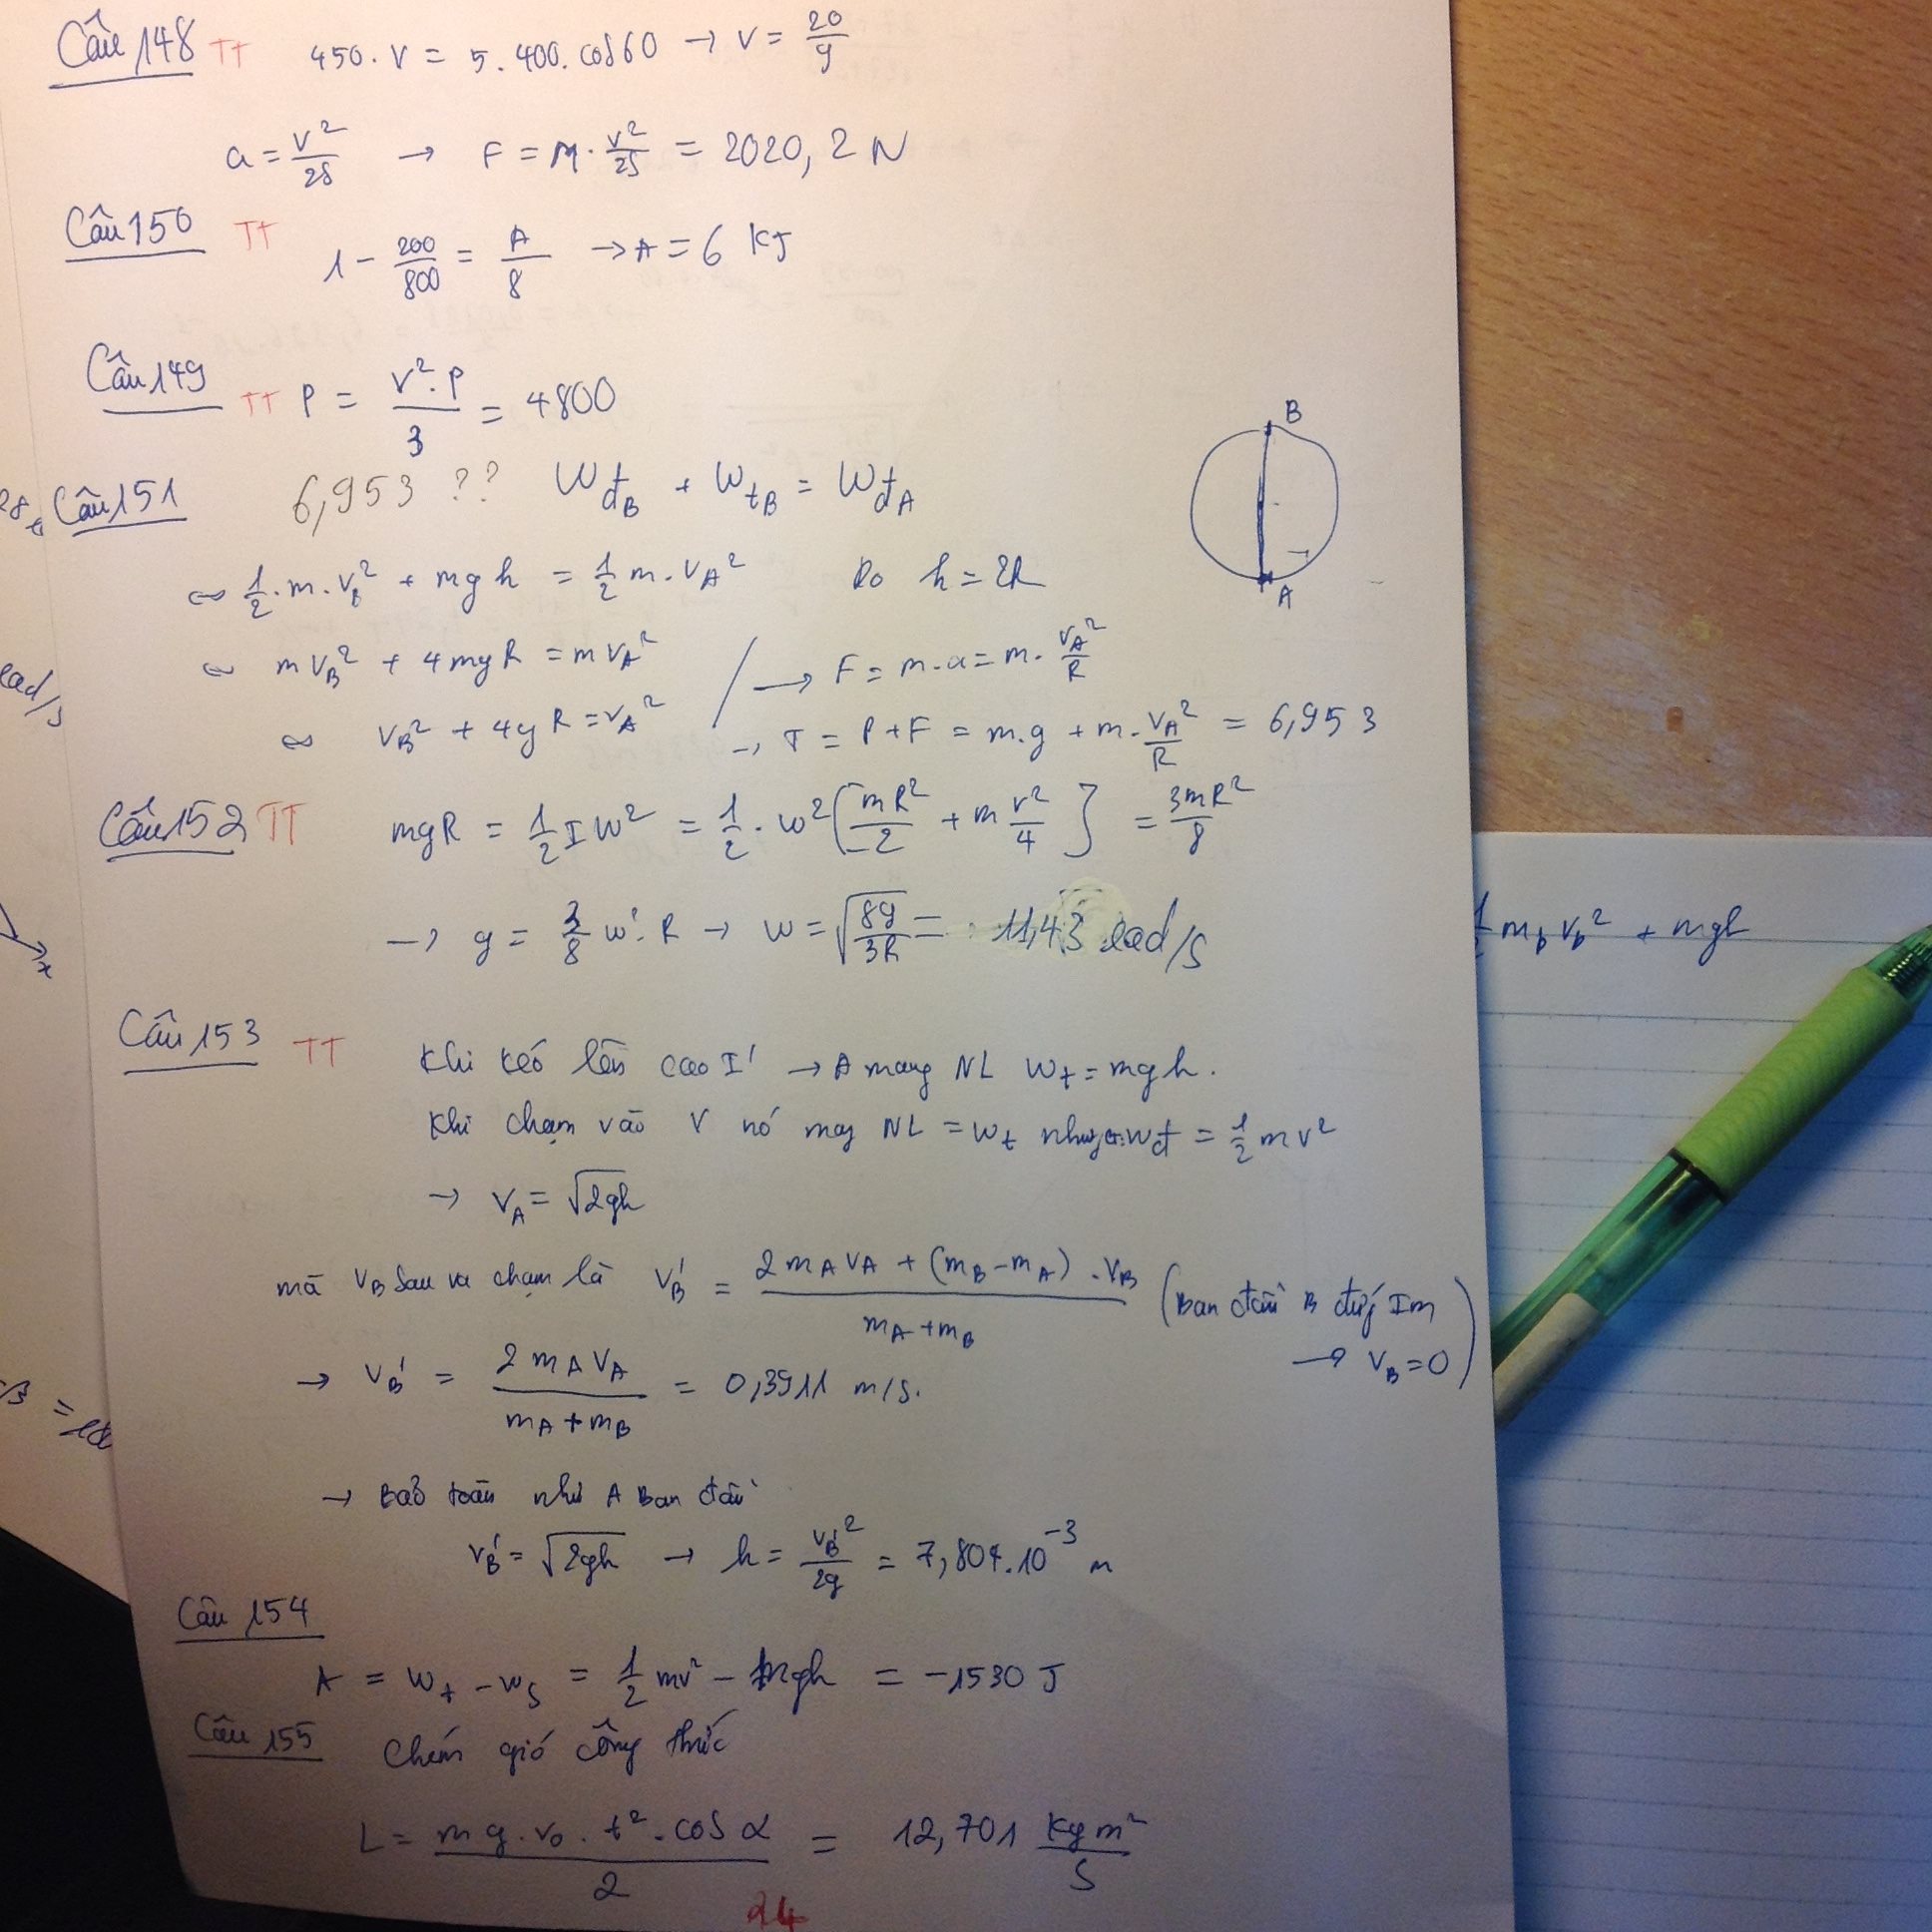 Câu 148 TT 450. V = 5. 400. cos 60 → V = 20/9
a = v²/25 → F = M. v²/25 = 2020, 2 N
Câu 150 TT 1 - 200/800 = A/8 → A = 6 KJ
Câu 149 TT P = v². P/3 = 4800
Câu 151 6,953 ?? WđB + WtB = WđA
⇔ 1/2. m. vB² + mgh = 1/2 m. VA² Do h = 2R
⇔ mVB² + 4mgR = mVA² → F = m.a = m. VA²/R
⇔ VB² + 4gR = VA² → T = P + F = m.g + m. VA²/R = 6,953
Câu 152 TT mgR = 1/2 I W² = 1/2. w² [mR²/2 + m r²/4] = 3mR²/8
→ g = 3/8 w². R → w = √(8g/3R) = 11,43 rad/s
Câu 153 TT Khi kéo lên cao I' → A mang NL Wt = mgh.
Khi chạm vào V nó mang NL = Wt nhưng Wđ = 1/2 mv²
→ VA = √2gh
mà VB sau va chạm là VB' = 2mAVA + (mB - mA). VB / mA + mB (Ban đầu B đứng Im → VB = 0)
→ VB' = 2 mA VA / mA + mB = 0,3911 m/s.
→ Bảo toàn như A Ban đầu
VB' = √2gh → h = VB'²/2g = 7,804.10⁻³ m
Câu 154
A = Wt - Ws = 1/2 mv² - mgh = -1530 J
Câu 155 Chém gió công thức
L = mg. v₀. t². cos α / 2 = 12,701 kg m²/s
24
1/2 mb vb² + mgh
rad/s